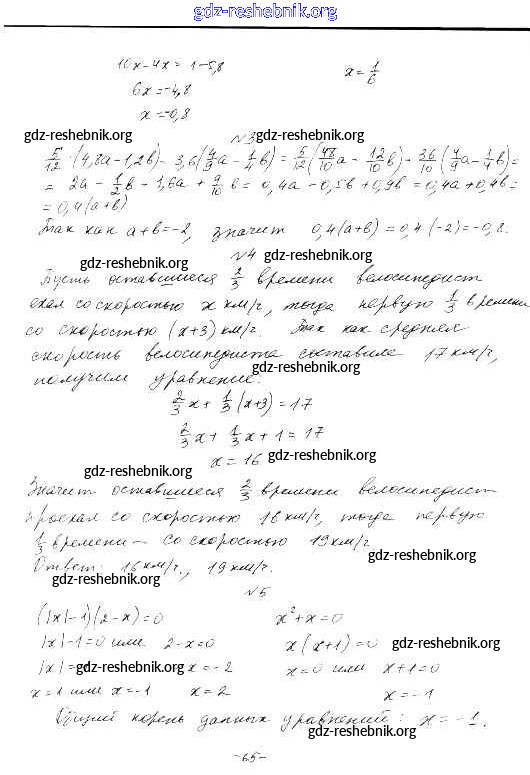 gdz-reshebnik.org
10x-4x = 1-5,8 x = 1/6
6x = -4,8
x = -0,8
gdz-reshebnik.org №3 gdz-reshebnik.org
5/12 · (4,8a-1,2b) - 3,6(4/9a - 1/4b) = 5/12(48/10a - 12/10b) - 36/10(4/9a - 1/4b) =
= 2a - 1/2b - 1,6a + 9/10b = 0,4a - 0,5b + 0,9b = 0,4a + 0,4b =
= 0,4(a+b)
Так как a+b=-2, значит 0,4(a+b) = 0,4·(-2) = -0,8.
gdz-reshebnik.org №4 gdz-reshebnik.org
Пусть оставшиеся 2/3 времени велосипедист
ехал со скоростью x км/ч, тогда первую 1/3 времени
со скоростью (x+3) км/ч. Так как средняя
скорость велосипедиста составила 17 км/ч,
gdz-reshebnik.org
получим уравнение:
2/3x + 1/3(x+3) = 17
2/3x + 1/3x + 1 = 17
x = 16 gdz-reshebnik.org
gdz-reshebnik.org
Значит оставшиеся 2/3 времени велосипедист
проехал со скоростью 16 км/ч, тогда первую
1/3 времени - со скоростью 19 км/ч
gdz-reshebnik.org
Ответ: 16 км/ч., 19 км/ч.
gdz-reshebnik.org
№5
(|x|-1)(2-x)=0 x²+x=0
|x|-1=0 или 2-x=0 x(x+1)=0 gdz-reshebnik.org
|x|= gdz-reshebnik.org x=-2 x=0 или x+1=0
x=1 или x=-1 x=2 x=-1
Общий корень данных уравнений: x=-1.
gdz-reshebnik.org
-65-